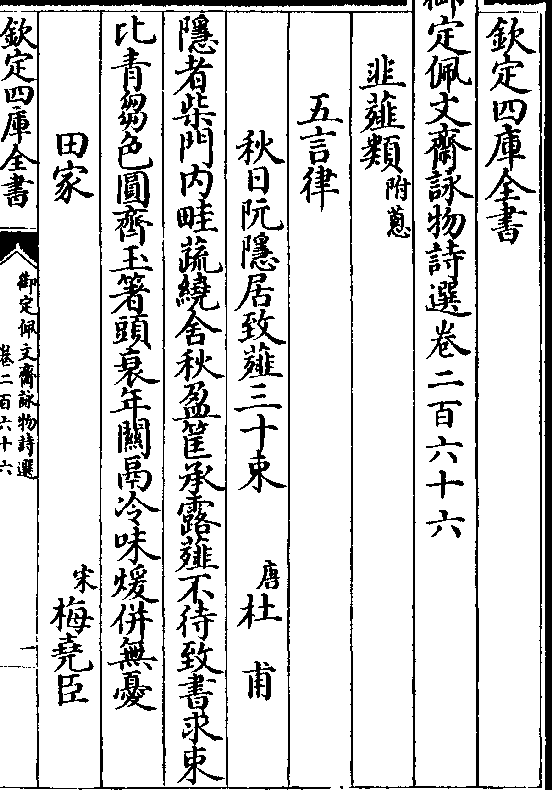 欽定四庫全書
御定佩文齋詠物詩選卷二百六十六
韭薤類附蔥
五言律
秋日阮隱居致薤三十束 唐杜甫
隱者柴門内畦蔬繞舍秋盈筐承露薤不待致書求束
比青芻色圓齊玉箸頭衰年關鬲冷味煖併無憂
田家 宋梅堯臣
欽定四庫全書
御定佩文齋詠物詩選
卷二百六十六
一